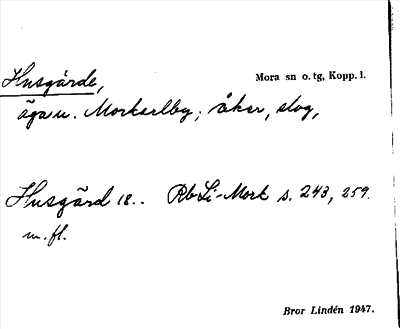 Husgärde,
Mora sn o. tg, Kopp. l.
ägau. Morkarlby; åker, slog,
Husgärd 18.. Rb Li-Mork s. 243, 259.
m. fl.
Bror Lindén 1947.